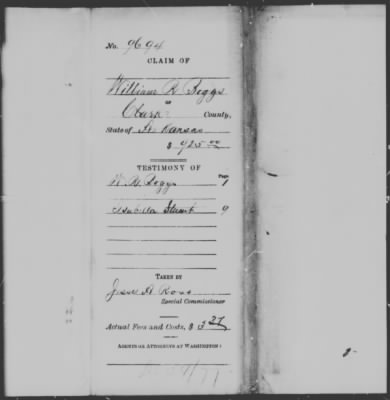 No. 9694
CLAIM OF
William R Boggs
OF
Clark County,
State of Arkansas
$ 925.00
TESTIMONY OF
Page
W. R. Boggs 1
Stuart 9
TAKEN BY
Jesse A Ross
Special Commissioner
Actual Fees and Costs, $
AGENTS OR ATTORNEYS AT WASHINGTON: